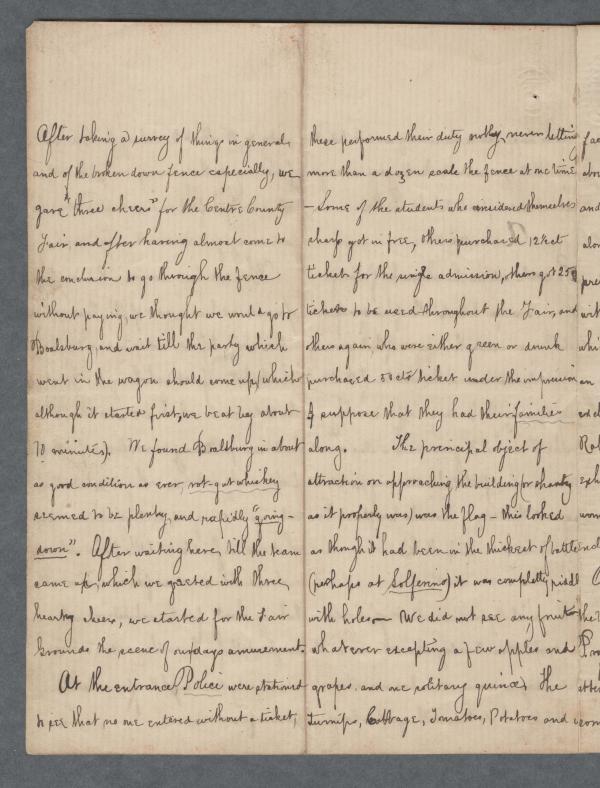 After taking a survey of things in general,
and of the broken down fence especially, we
gave "three cheers" for the Centre County
Fair, and after having almost come to
the conclusion to go through the fence
without paying, we thought we would go to
Boalsburg, and wait till the party which
went in the wagon should come up, (which
although it started first, we beat by about
10 minutes). We found Boalsburg in about
as good condition as ever, rot-gut whiskey
seemed to be plenty, and rapidly "going-
down". After waiting here, till the team
came up, which we greeted with three
hearty cheers, we started for the Fair
Grounds the scene of our days amusement.
At the entrance Police were stationed
to see that no one entered without a ticket,
these performed their duty nobly, never letting
more than a dozen scale the fence at one time
- Some of the students who considered themselves
sharp got in free, others purchased 12½ct
ticket for the single admission, others got 25c
tickets to be used throughout the Fair, and
others again who were either green or drunk
purchased 50cts ticket under the impression
I suppose that they had their families
along. The principal object of
attraction on approaching the building (or shanty
as it properly was) was the flag - this looked
as though it had been in the thickest of battle
(perhaps at Solferino) it was completly
with holes - We did not see any fruit
whatever excepting a few apples and
grapes. and one solitary quince, The
turnips, Cabbage, Tomatoes, Potatoes and